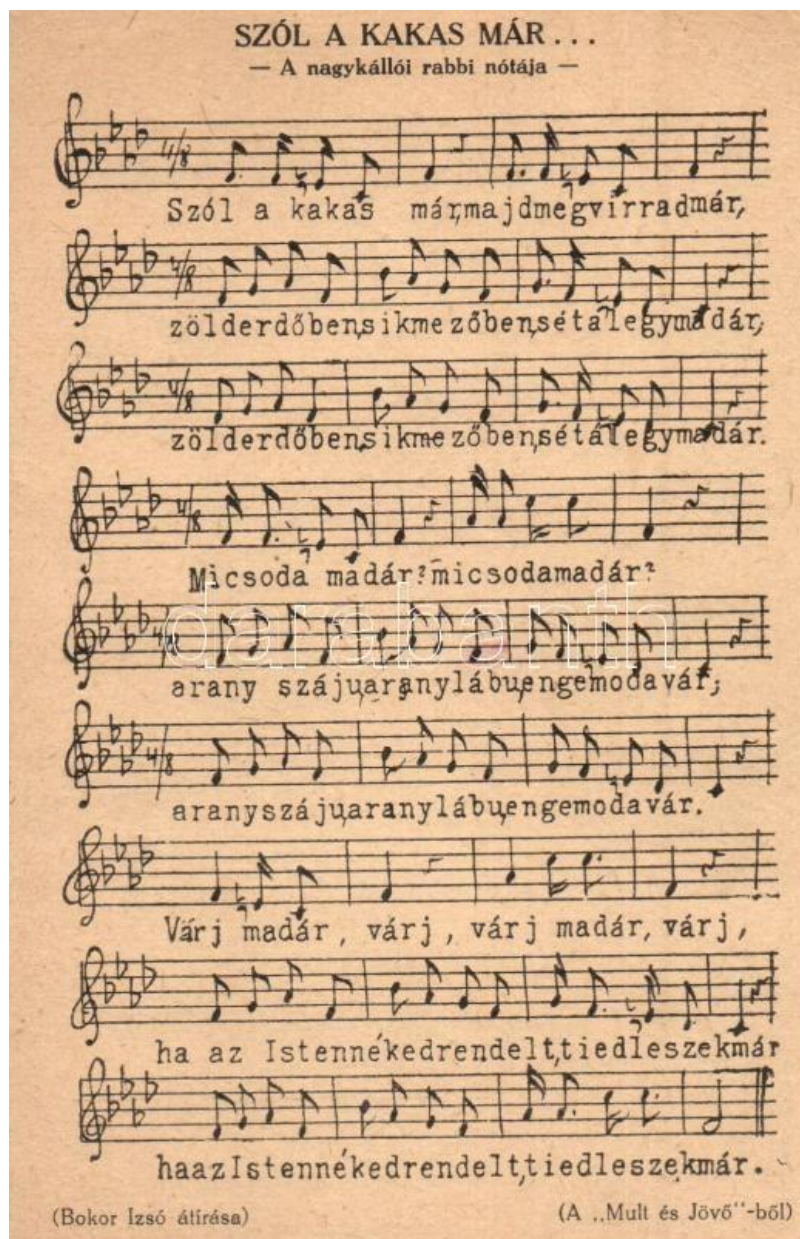 SZÓL A KAKAS MÁR...
— A nagykállói rabbi nótája —
4/8
Szól a kakas már,majdmegvirradmár,
4/8
zölderdőben,sikmezőben,sétálegymadár,
4/8
zölderdőben,sikmezőben,sétálegymadár.
4/8
Micsoda madár?micsodamadár?
4/8
darabanth
arany száju,aranylábu,engemodavár,
4/8
aranyszáju,aranylábu,engemodavár.
Várj madár, várj, várj madár, várj,
ha az Istennékedrendelt,tiedleszekmár
haazIstennékedrendelt,tiedleszekmár.
(Bokor Izsó átírása) (A „Mult és Jövő"-ből)